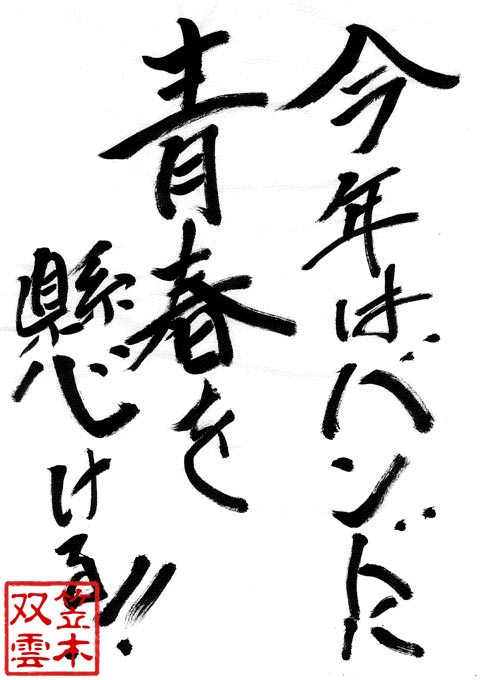 今年はバンドに
青春を
懸ける!!
笠本
双雲